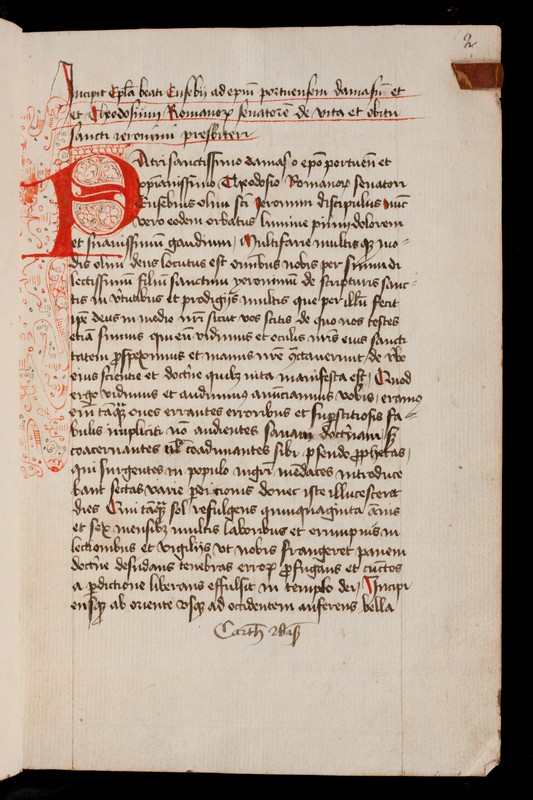 2
Incipit Epła beati Eusebij ad epm̄ portuensem damasiū et
et Theodosium Romanorꝝ senatorē de vita et obitu
sancti ieronimi presbiteri
PAtri sanctissimo damaso epo portuen̄ et
xpianissimo Theodosio Romanorꝝ senatori
Eusebius olim sci Jeronimi discipulus nūc
vero eodem orbatus lumine piium dolorem
et suauissimum gaudium / Multifarie multis qꝫ mo-
dis olim deus locutus est omībus nobis per suum di
lectissimum filium sanctum yeronimū de scripturis sanc-
tis in v̄tutibus et prodigijs multis que per illū fecit
ip̄e deus in medio nr̄i sicut vos scitis de quo nos testes
etiā sumus quem vidimus et oculis nr̄is eius sancti
tatem ꝓspeximus et manus nr̄e ꝯtractauerunt de v̄bo
eius sciencie et doctr̄ne quibꝫ vita manifesta est / Quod
ergo vidimus et audiuimus anūciamus vobis / eramꝰ
eni tāqꝫ oues errantes erroribus et suꝑstitiosis fa-
bulis impliciti nō audientes sanam doctrinam sꝫ
coaceruantes coadunantes sibi pseudo ꝓphetas
qui surgentes in populo mēdaces introduce
bant sectas varie ꝑdicionis donec iste illucesceret
dies Qui tāqꝫ sol refulgens quinquaginta ānis
et sex mensibꝫ multis laboribus et erumpnis in
lectionibus et vigilijs vt nobis frangeret panem
doctr̄ne desudans tenebras errorꝝ ꝓfugans et cūctos
a ꝑdictione liberans effulsit in templo dei / Incipi
ensqꝫ ab oriente vsqꝫ ad occidentem auferens bella
Carth̄